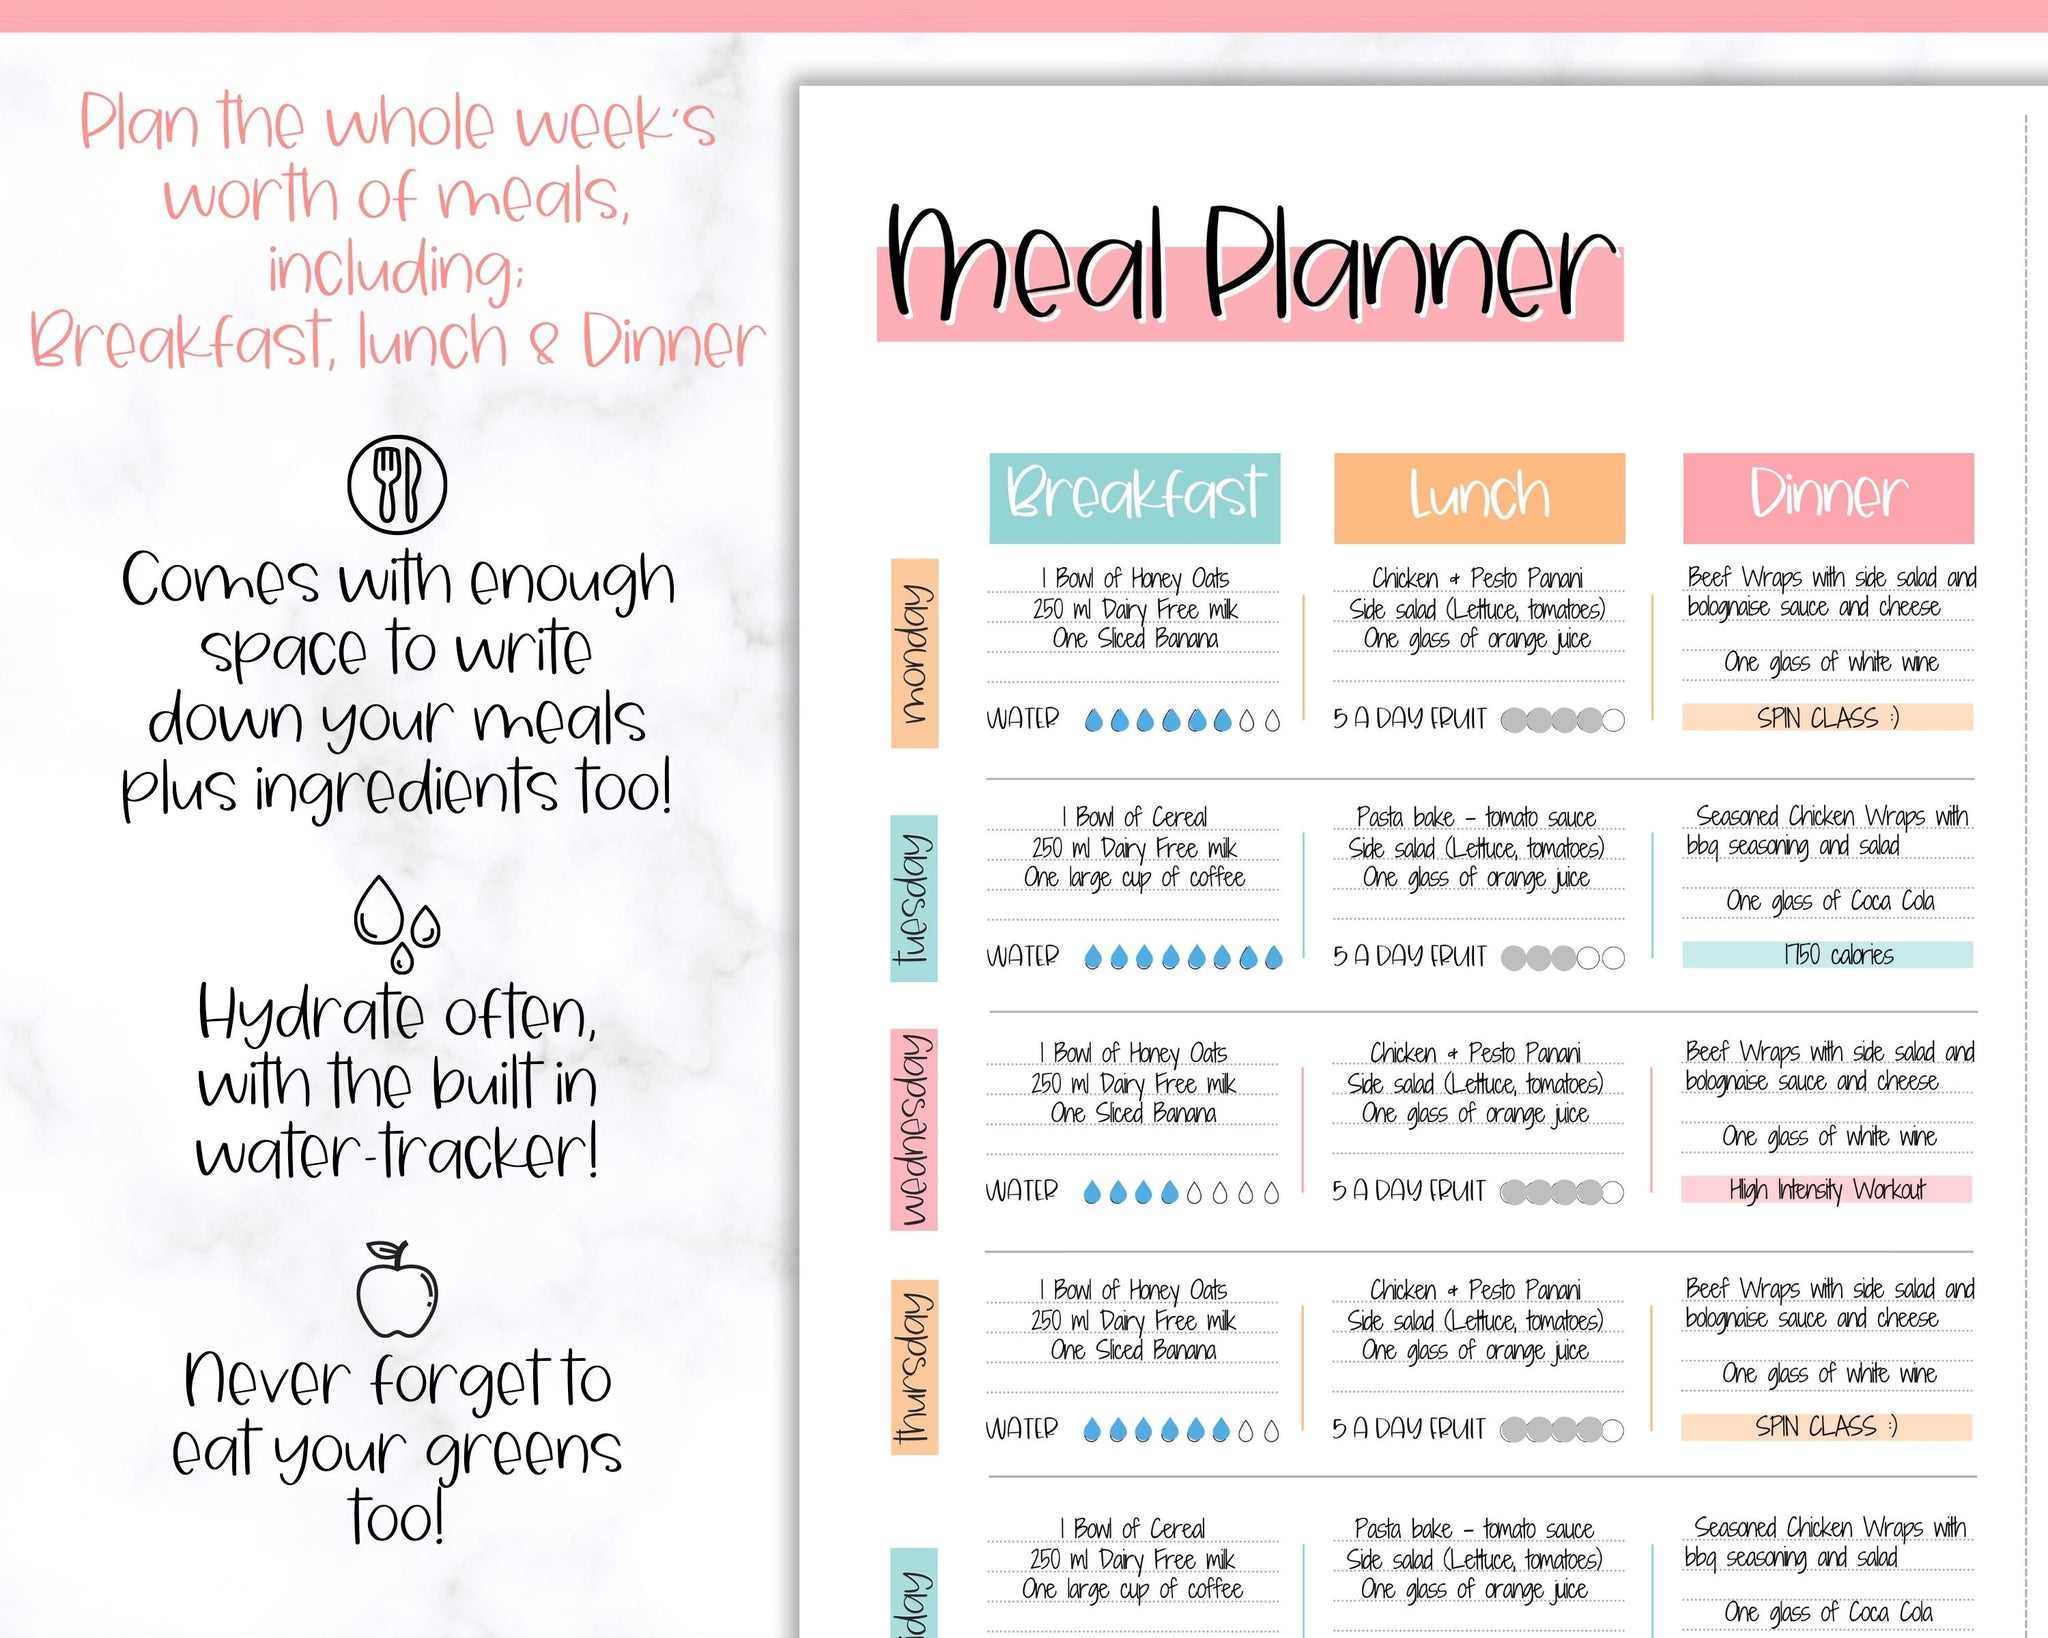 Plan the whole week's
worth of meals,
including;
Breakfast, lunch & Dinner
Comes with enough
space to write
down your meals
plus ingredients too!
Hydrate often,
with the built in
water-tracker!
Never forget to
eat your greens
too!
Meal Planner
Breakfast
Lunch
Dinner
monday
1 Bowl of Honey Oats
250 ml Dairy Free milk
One Sliced Banana
WATER
Chicken + Pesto Panani
Side salad (Lettuce, tomatoes)
One glass of orange juice
5 A DAY FRUIT
Beef Wraps with side salad and
bolognaise sauce and cheese
One glass of white wine
SPIN CLASS :)
tuesday
1 Bowl of Cereal
250 ml Dairy Free milk
One large cup of coffee
WATER
Pasta bake - tomato sauce
Side salad (Lettuce, tomatoes)
One glass of orange juice
5 A DAY FRUIT
Seasoned Chicken Wraps with
bbq seasoning and salad
One glass of Coca Cola
1750 calories
wednesday
1 Bowl of Honey Oats
250 ml Dairy Free milk
One Sliced Banana
WATER
Chicken + Pesto Panani
Side salad (Lettuce, tomatoes)
One glass of orange juice
5 A DAY FRUIT
Beef Wraps with side salad and
bolognaise sauce and cheese
One glass of white wine
High Intensity Workout
thursday
1 Bowl of Honey Oats
250 ml Dairy Free milk
One Sliced Banana
WATER
Chicken + Pesto Panani
Side salad (Lettuce, tomatoes)
One glass of orange juice
5 A DAY FRUIT
Beef Wraps with side salad and
bolognaise sauce and cheese
One glass of white wine
SPIN CLASS :)
iday
1 Bowl of Cereal
250 ml Dairy Free milk
One large cup of coffee
Pasta bake - tomato sauce
Side salad (Lettuce, tomatoes)
One glass of orange juice
Seasoned Chicken Wraps with
bbq seasoning and salad
One glass of Coca Cola